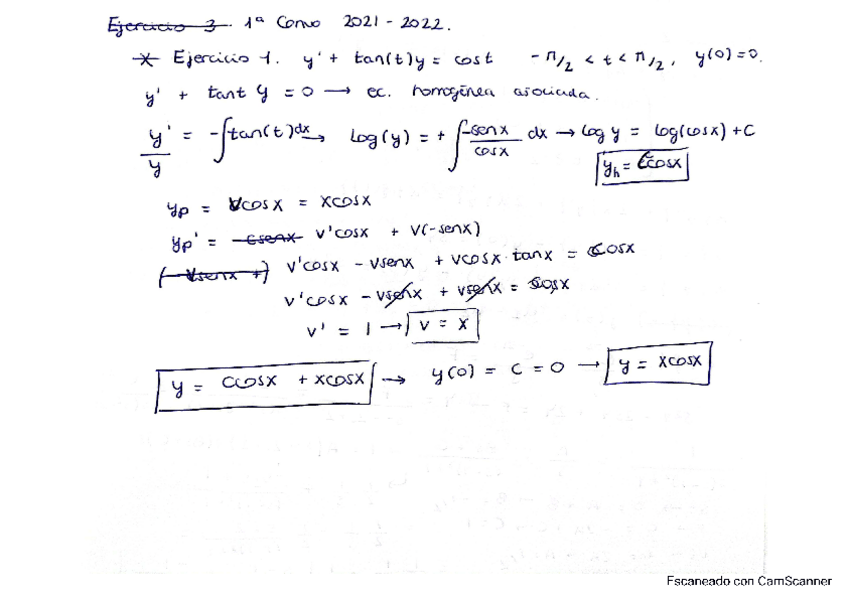 Ejercicio 3. 1ª Convo 2021 - 2022.
* Ejercicio 1. y' + tan(t)y = cost -π/2 < t < π/2, y(0)=0.
y' + tant y = 0 → ec. homogénea asociada.
y'/y = -∫tan(t)dx → Log(y) = + ∫-senx/cosx dx → Log y = log(cosx) + C
yh = Ccosx
yp = Vcosx = xcosx
yp' = -csenx v'cosx + v(-senx)
(-vsenx +) v'cosx - vsenx + vcosx·tanx = cosx
v'cosx - vsenx + vsenx = cosx
v' = 1 → v = x
y = Ccosx + xcosx → y(0) = C = 0 → y = xcosx
Escaneado con CamScanner